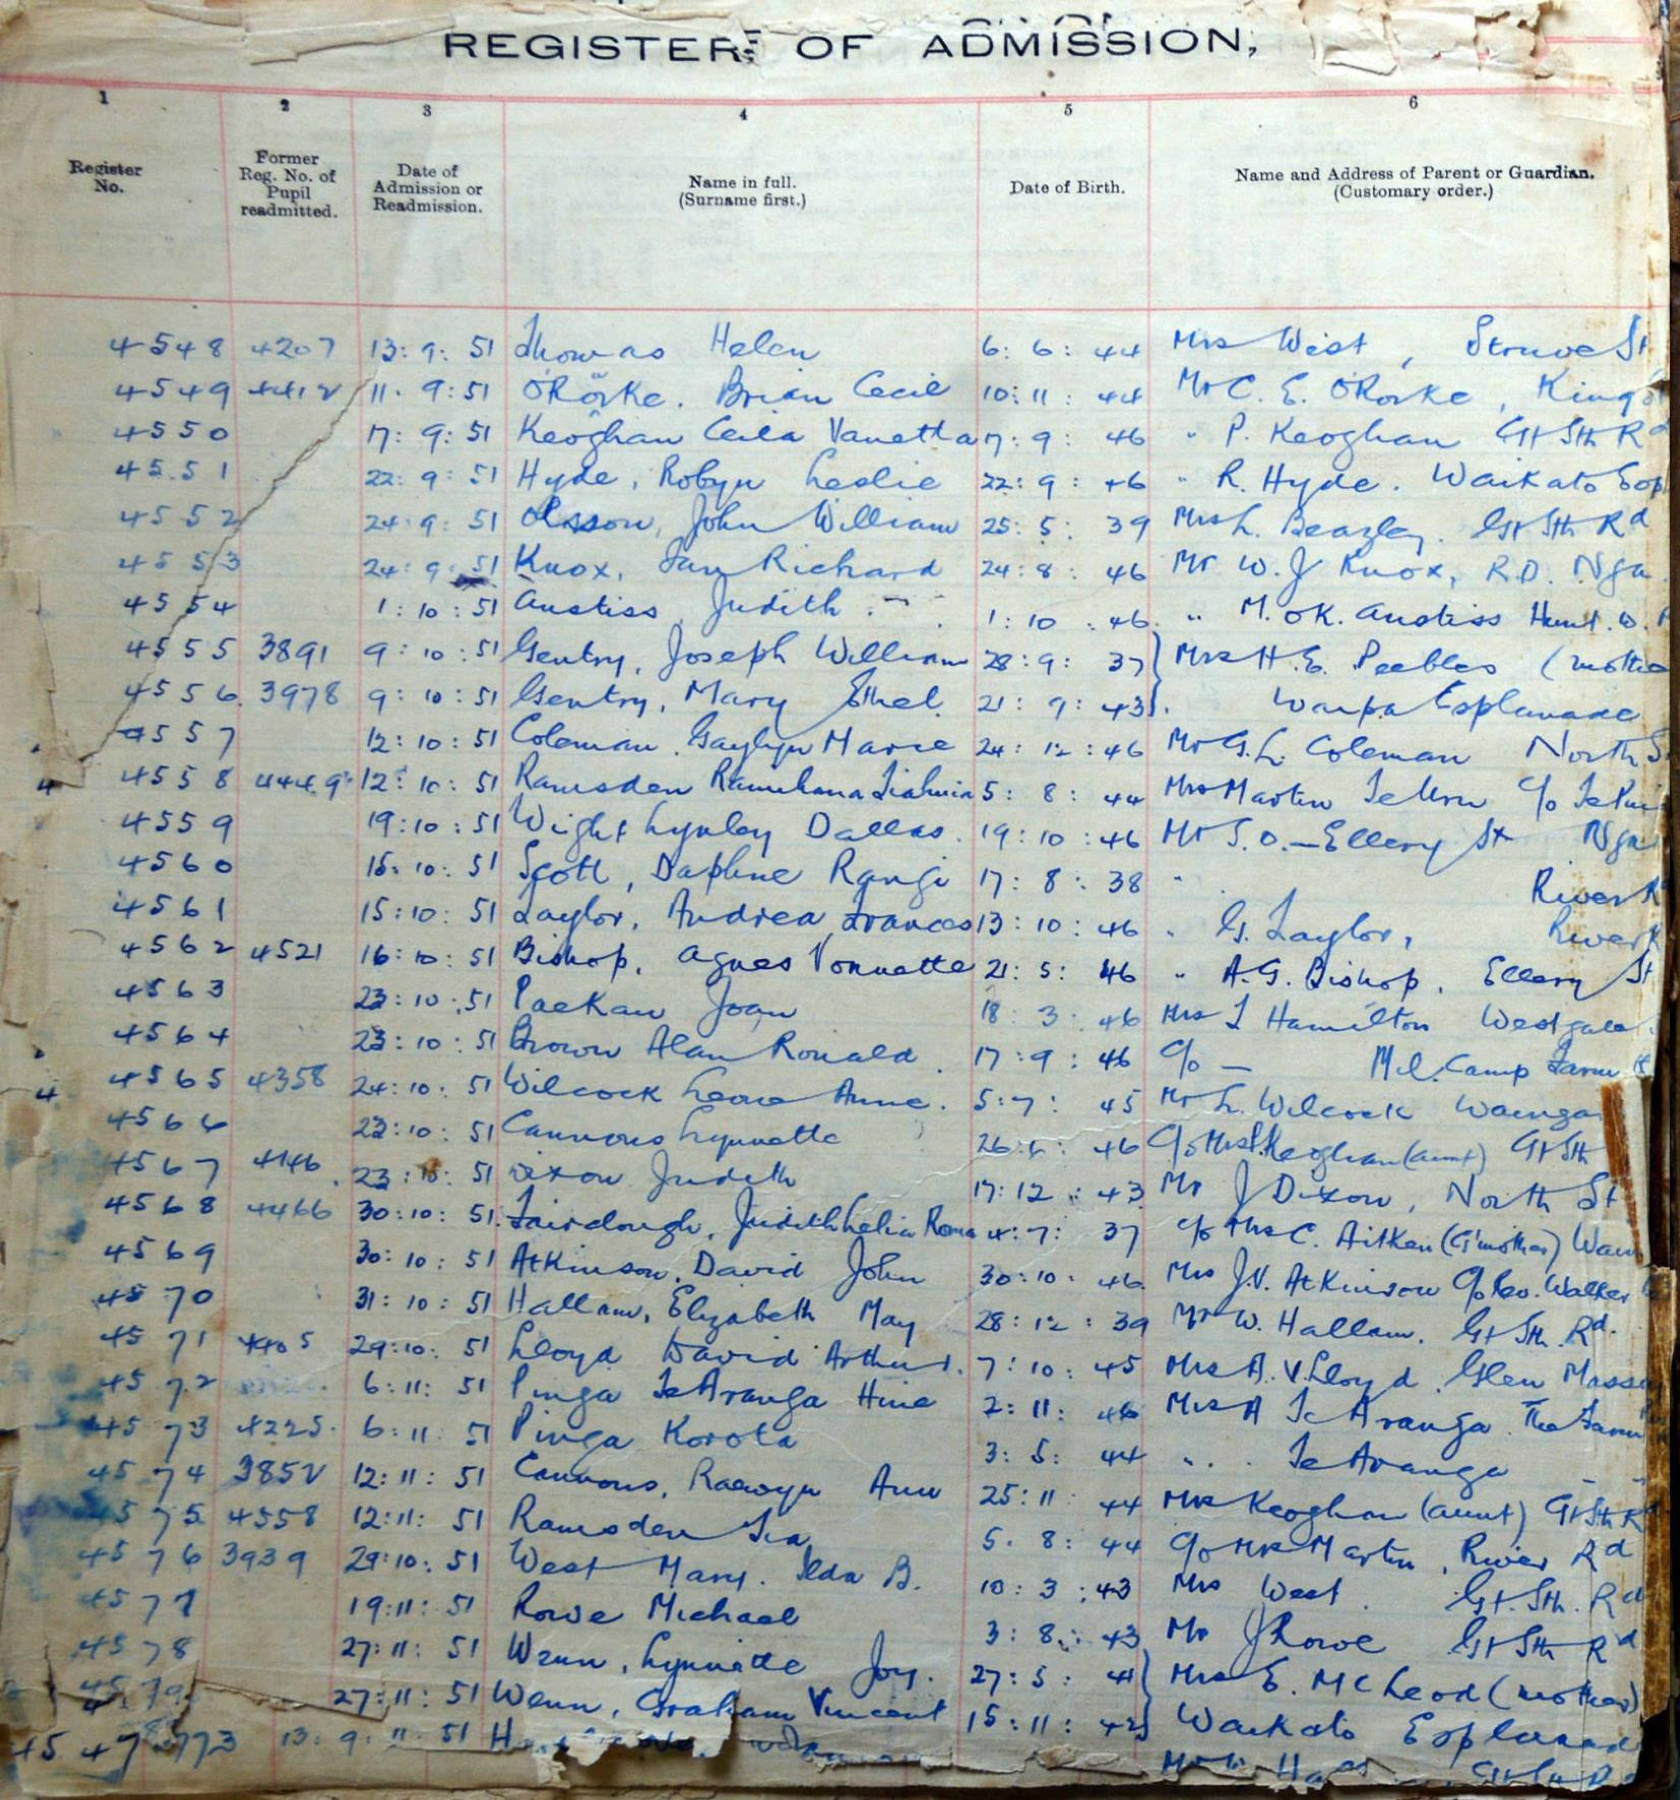 REGISTER OF ADMISSION,
1 2 3 4 5 6
Register No. Former Reg. No. of Pupil readmitted. Date of Admission or Readmission. Name in full. (Surname first.) Date of Birth. Name and Address of Parent or Guardian. (Customary order.)
4548 4207 13: 9: 51 Thomas Helen 6: 6: 44 Mrs West,
4549 4412 11. 9: 51 O'Rorke. Brian Cecil 10: 11: 44 Mr C. E. O'Rorke, King
4550 17: 9: 51 Keoghan Vanetta 17: 9: 46 " P. Keoghan Gt Sth Rd
4551 22: 9: 51 Hyde, Robyn Leslie 22: 9: 46 " R. Hyde. Waikato Esp
4552 24: 9: 51 Olsson, John William 25: 5: 39 Mrs L. Beazley. Gt Sth Rd
4553 24: 9: 51 Knox, Ian Richard 24: 8: 46 Mr W. J Knox, R.D. Nga
4554 1: 10: 51 Anstiss Judith 1: 10: 46 " M. O K. Anstiss Hunt. W.
4555 3891 9: 10: 51 Gentry, Joseph William 28: 9: 37 Mrs H. E. Peebles (mothe
4556 3978 9: 10: 51 Gentry, Mary Ethel. 21: 9: 43 Waipa Esplanade
4557 12: 10: 51 Coleman. Gaylyn Marie 24: 12: 46 Mr G. L. Coleman North S
4558 4449 12: 10: 51 Ramsden 5: 8: 44 Mrs Martin c/o
4559 19: 10: 51 Wight Lynley Dallas. 19: 10: 46 Mr S. O. — Ellery St Nga
4560 15: 10: 51 Scott, Daphne Rangi 17: 8: 38 " River R
4561 15: 10: 51 Taylor, Andrea Frances 13: 10: 46 " G. Taylor, River R
4562 4521 16: 10: 51 Bishop, Agnes Vonnette 21: 5: 46 " A. G. Bishop, Ellery St
4563 23: 10: 51 Paekau Joan 18: 3: 46 Mrs Hamilton
4564 23: 10: 51 Brown Alan Ronald. 17: 9: 46 c/o — Mil. Camp
4565 4358 24: 10: 51 Wilcock Anne. 5: 7: 45 Mr L. Wilcock
4566 23: 10: 51 Cannons Lynnette 26: 46 c/o Mrs P. Keoghan (aunt) Gt Sth
4567 4146 23: 10: 51 Dixon Judith 17: 12: 43 Mr J Dixon, North St
4568 4466 30: 10: 51 Fairclough, Judith Roma 4: 7: 37 c/o Mrs C. Aitken (G'mother)
4569 30: 10: 51 Atkinson, David John 30: 10: 46 Mrs J. V. Atkinson c/o Rev. Walker
4570 31: 10: 51 Hallam, Elizabeth May 28: 12: 39 Mr W. Hallam. Gt Sth. Rd.
4571 4405 29: 10: 51 Lloyd David Arthur. 7: 10: 45 Mrs A. V. Lloyd. Glen Masse
4572 6: 11: 51 Pinga Te Aranga Hine 2: 11: 46 Mrs A Te Aranga. The Farm
4573 4225. 6: 11: 51 Pinga Korota 3: 5: 44 " Te Aranga
4574 3852 12: 11: 51 Cannons, Raewyn Ann 25: 11: 44 Mrs Keoghan (aunt) Gt Sth R
4575 4558 12: 11: 51 Ramsden Tia 5. 8: 44 c/o Mrs Martin, River Rd
4576 3939 29: 10: 51 West Mary. Ilda B. 10: 3: 43 Mrs West Gt. Sth. Rd
4577 19: 11: 51 Rowe Michael 3: 8: 43 Mr J Rowe Gt Sth Rd
4578 27: 11: 51 Wenn, Lynnette Joy. 27: 5: 41 Mrs E. McLeod (mother)
4579 27: 11: 51 Wenn, Graham Vincent 15: 11: 42 Waikato Esplanade
51